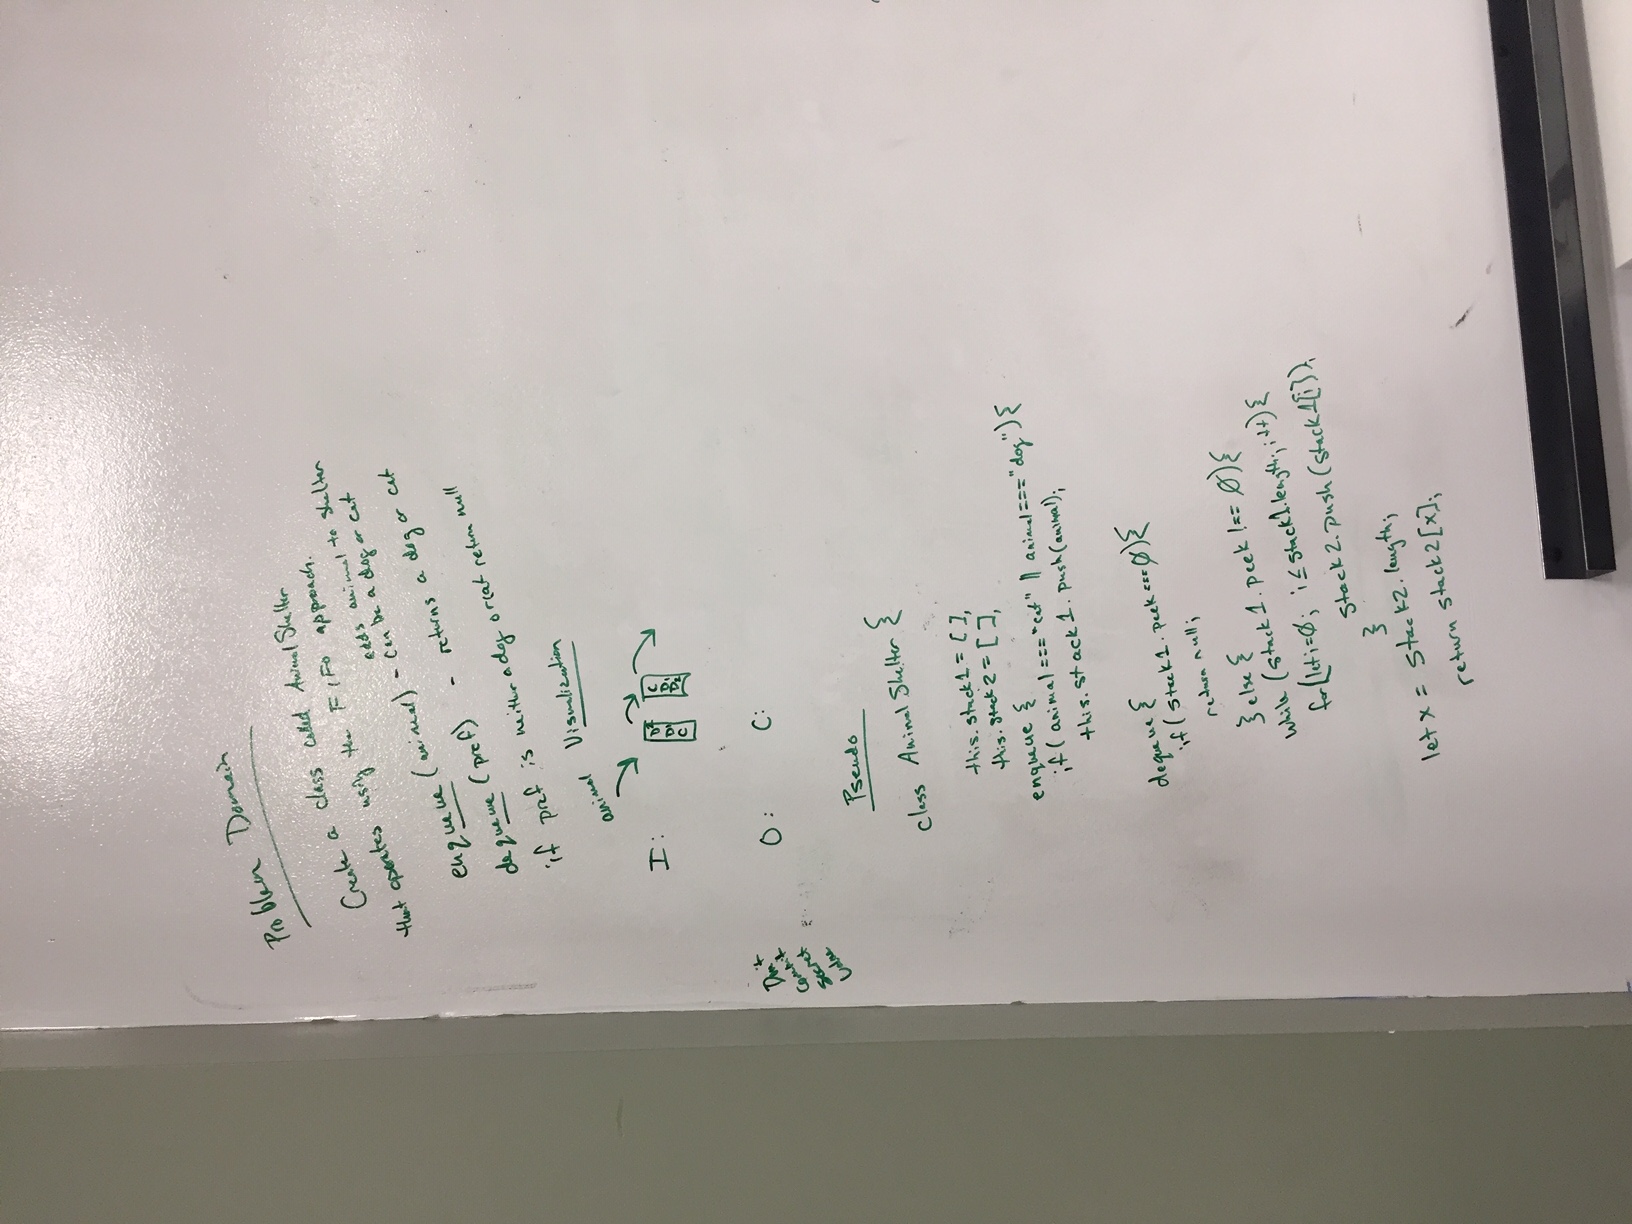 Problem Domain
Create a class called AnimalShelter
that operates using the FIFO approach.
adds animal to shelter
enqueue (animal) - can be a dog or cat
dequeue (pref) - returns a dog or cat
if pref is neither a dog or cat return null
Visualization
animal
I:
D2 C
D1 D1
C D2
O: C:
Don't
commit
secret
value
Pseudo
class AnimalShelter {
this.stack1 = [ ],
this.stack2 = [ ],
enqueue {
if ( animal === "cat" || animal === "dog") {
this.stack1.push(animal);
dequeue {
if ( stack1.peek === 0) {
return null;
} else {
while (stack1.peek !== 0) {
for(let i=0; i ≤ stack1.length; i++) {
stack2.push(stack1[i]);
}
let x = stack2.length;
return stack2[x];